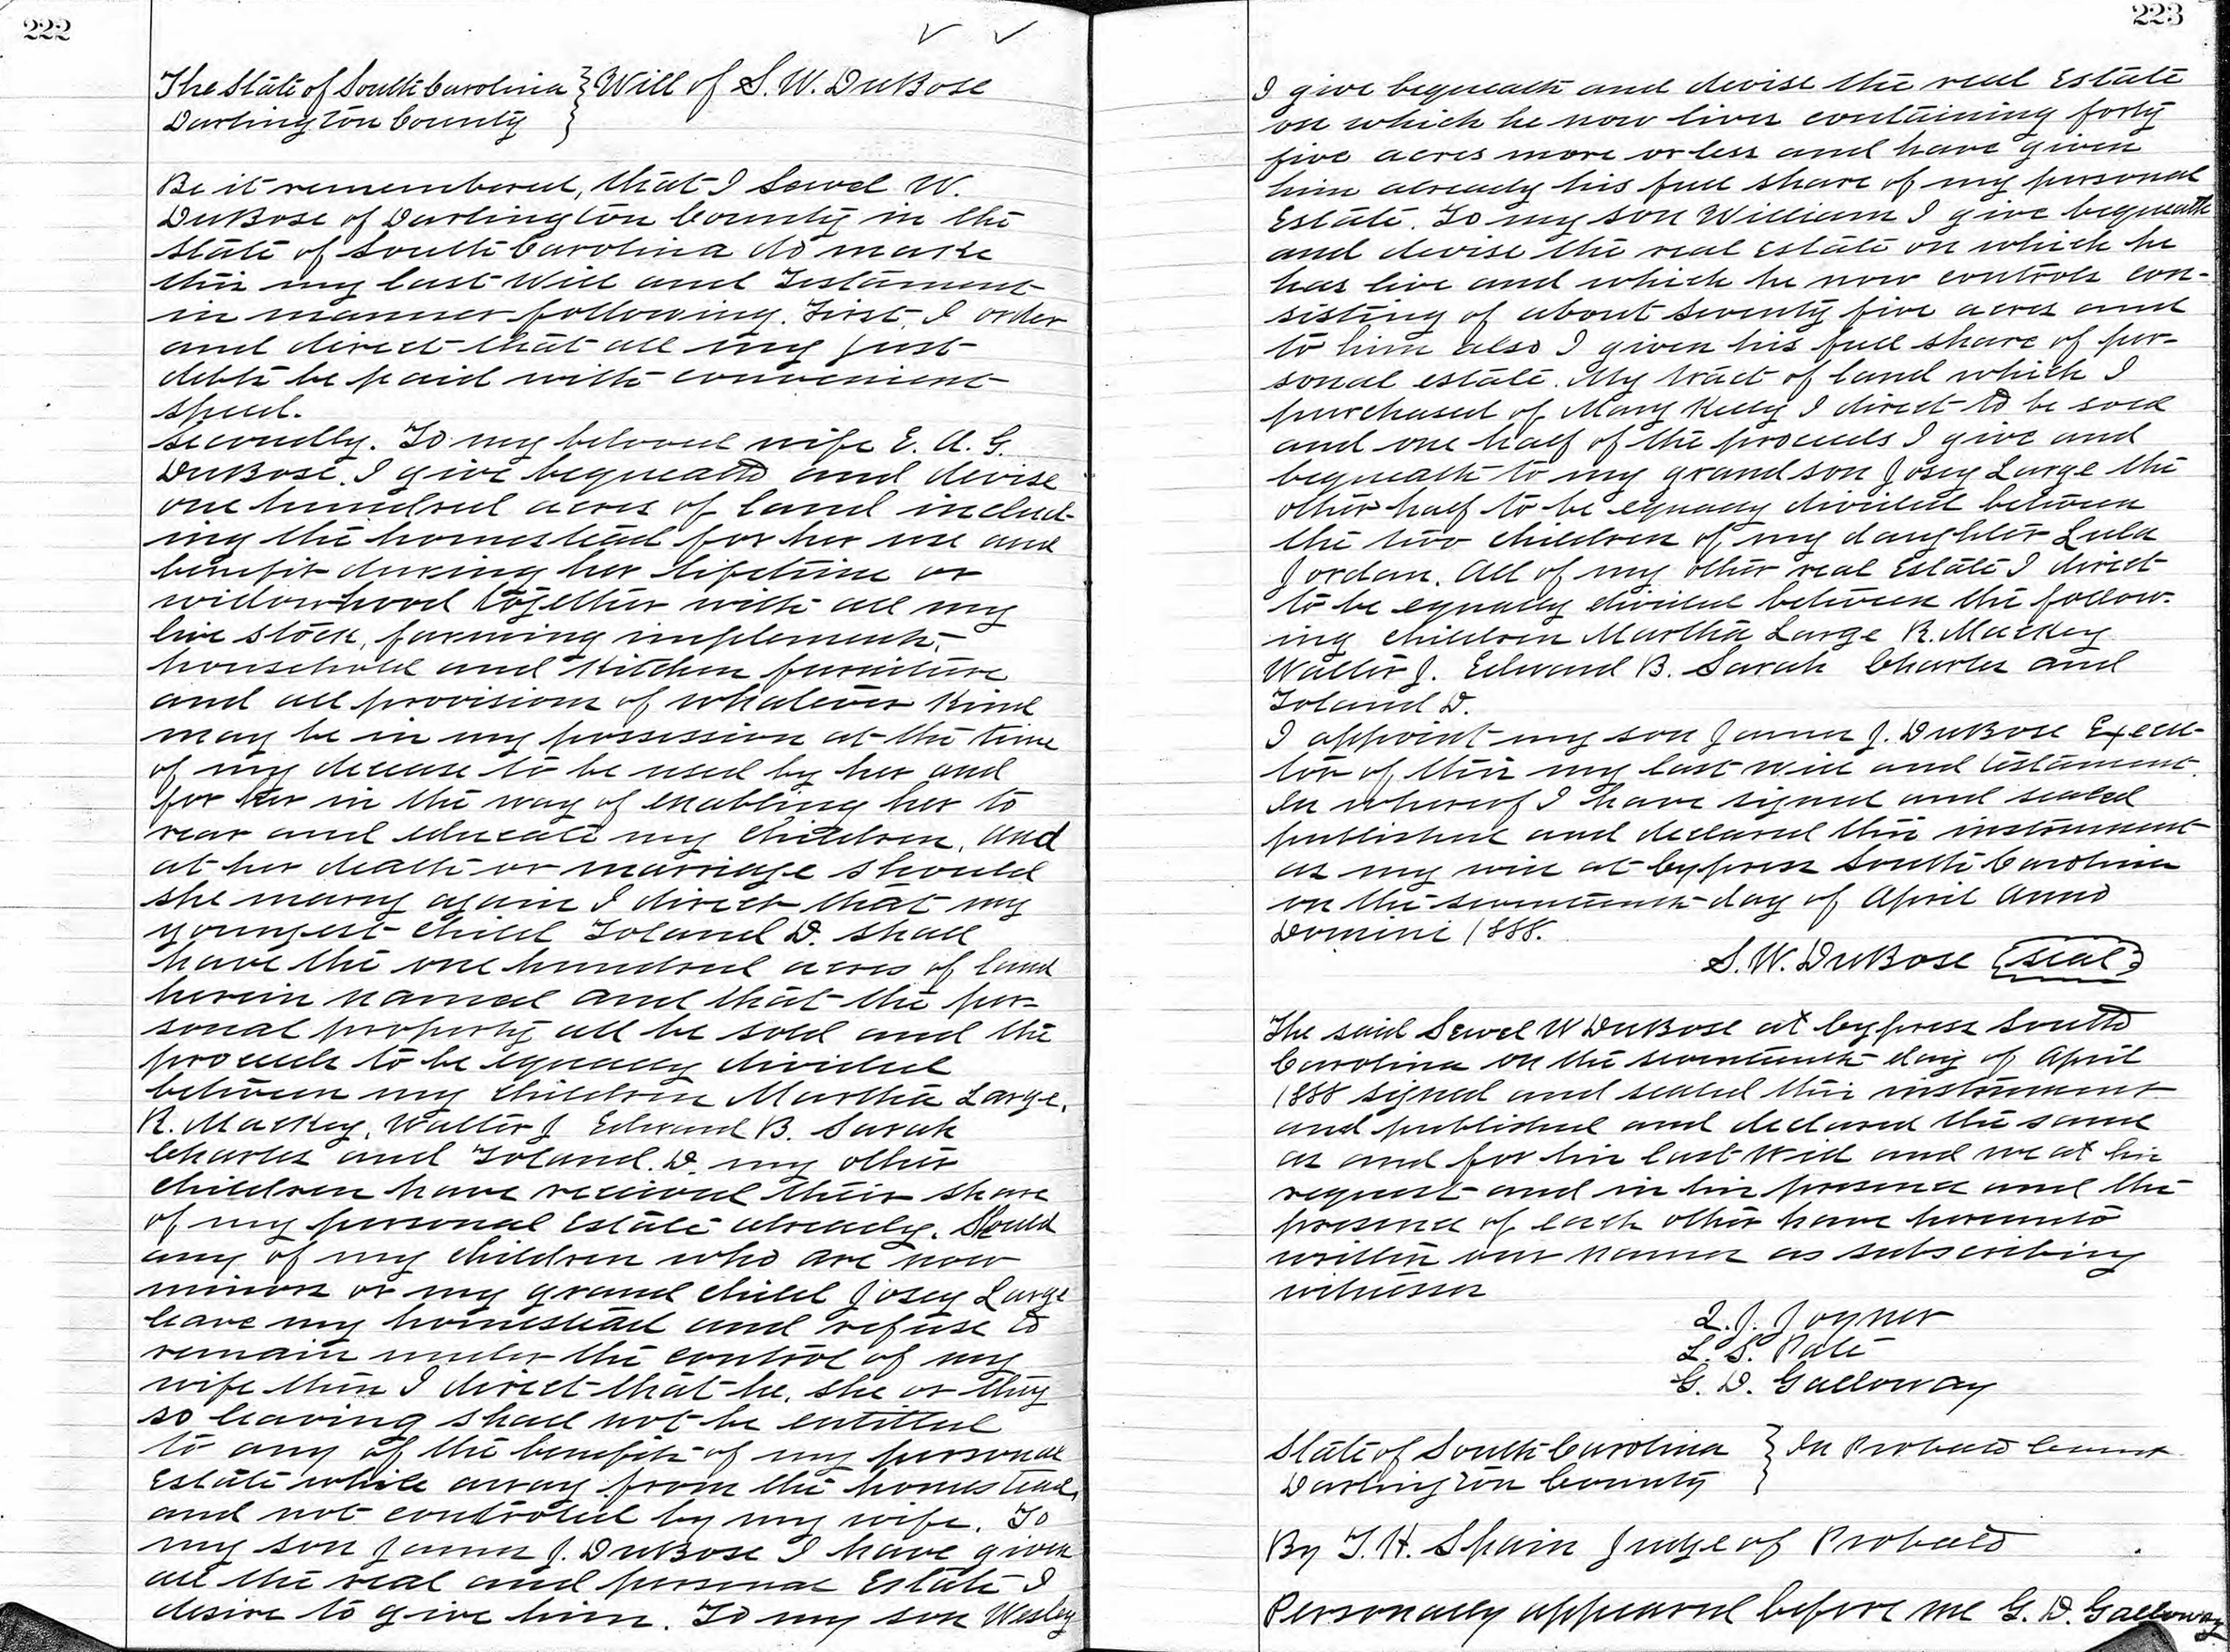 222
The State of South Carolina } Will of S. W. DuBose
Darlington County }
Be it remembered, that I Sewel W.
DuBose of Darlington County in the
State of South Carolina do make
this my last Will and Testament
in manner following. First, I order
and direct that all my just
debts be paid with convenient
speed.
Secondly. To my beloved wife E. A. G.
DuBose. I give bequeath and devise
one hundred acres of land includ-
ing the homestead for her use and
benefit during her lifetime or
widowhood together with all my
live stock, farming implements,
household and Kitchen furniture
and all provisions of whatever Kind
may be in my possession at the time
of my decease to be used by her and
for her in the way of enabling her to
rear and educate my children, and
at her death or marriage should
she marry again I direct that my
youngest child Toland D. shall
have the one hundred acres of land
herein named and that the per-
sonal property all be sold and the
proceeds to be equally divided
between my children Martha Large,
R. Mackey, Walter J Edward B. Sarah
Charles and Toland. D. my other
children have received their share
of my personal Estate already. Should
any of my children who are now
minors or my grand child Josey Large
leave my homestead and refuse to
remain under the control of my
wife then I direct that he, she or they
so leaving shall not be entitled
to any of the benefits of my personal
Estate while away from the homestead,
and not controled by my wife. To
my son James J. DuBose I have given
all the real and personal Estate I
desire to give him. To my son Wesley
223
I give bequeath and devise the real Estate
on which he now lives containing forty
five acres more or less and have given
him already his full share of my personal
Estate. To my son William I give bequeath
and devise the real estate on which he
has live and which he now controls con-
sisting of about seventy five acres and
to him also I given his full share of per-
sonal estate. My tract of land which I
purchased of Mary Kelly I direct to be sold
and one half of the proceeds I give and
bequeath to my grandson Josey Large the
other half to be equally divided between
the two children of my daughter Lula
Jordan. All of my other real Estate I direct
to be equally divided between the follow-
ing children Martha Large R. Mackey
Walter J. Edward B. Sarah Charles and
Toland D.
I appoint my son James J. DuBose Execu-
tor of this my last will and testament.
In whereof I have signed and sealed
published and declared this instrument
as my will at Cypress South Carolina
on the seventeenth day of April Anno
Domini 1888.
S. W. DuBose (seal)
The said Sewel W DuBose at Cypress South
Carolina on the seventeenth day of April
1888 signed and sealed this instrument
and published and declared the same
as and for his last Will and we at his
request and in his presence and the
presence of each other have hereunto
written our names as subscribing
witnesses
L. J. Joyner
L. S. Pate
G. D. Galloway
State of South Carolina } In Probate Court
Darlington County }
By T. H. Spain Judge of Probate
Personally appeared before me G. D. Galloway